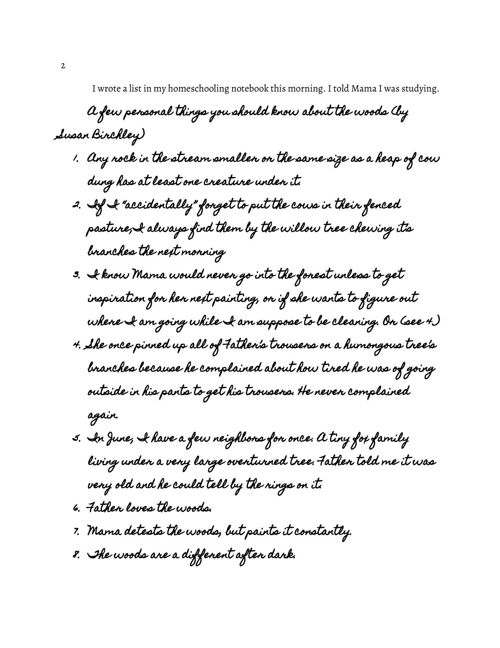 2
I wrote a list in my homeschooling notebook this morning. I told Mama I was studying.
A few personal things you should know about the woods (by
Susan Birchley)
1. Any rock in the stream smaller or the same size as a heap of cow
dung has at least one creature under it.
2. If I "accidentally" forget to put the cows in their fenced
pasture, I always find them by the willow tree chewing it's
branches the next morning
3. I know Mama would never go into the forest unless to get
inspiration for her next painting, or if she wants to figure out
where I am going while I am suppose to be cleaning. Or (see 4.)
4. She once pinned up all of Father's trousers on a humongous tree's
branches because he complained about how tired he was of going
outside in his pants to get his trousers. He never complained
again.
5. In June, I have a few neighbors for once. A tiny fox family
living under a very large overturned tree. Father told me it was
very old and he could tell by the rings on it.
6. Father loves the woods.
7. Mama detests the woods, but paints it constantly.
8. The woods are a different after dark.